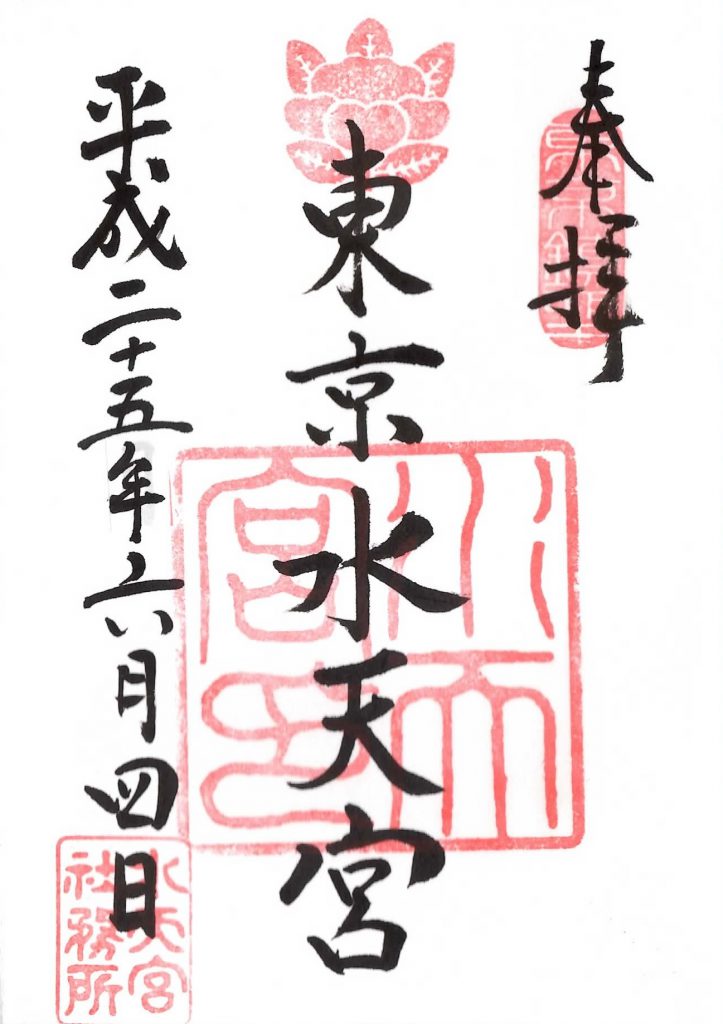 奉拝
東京水天宮
平成二十五年六月四日
水天宮印
水天宮
社務所